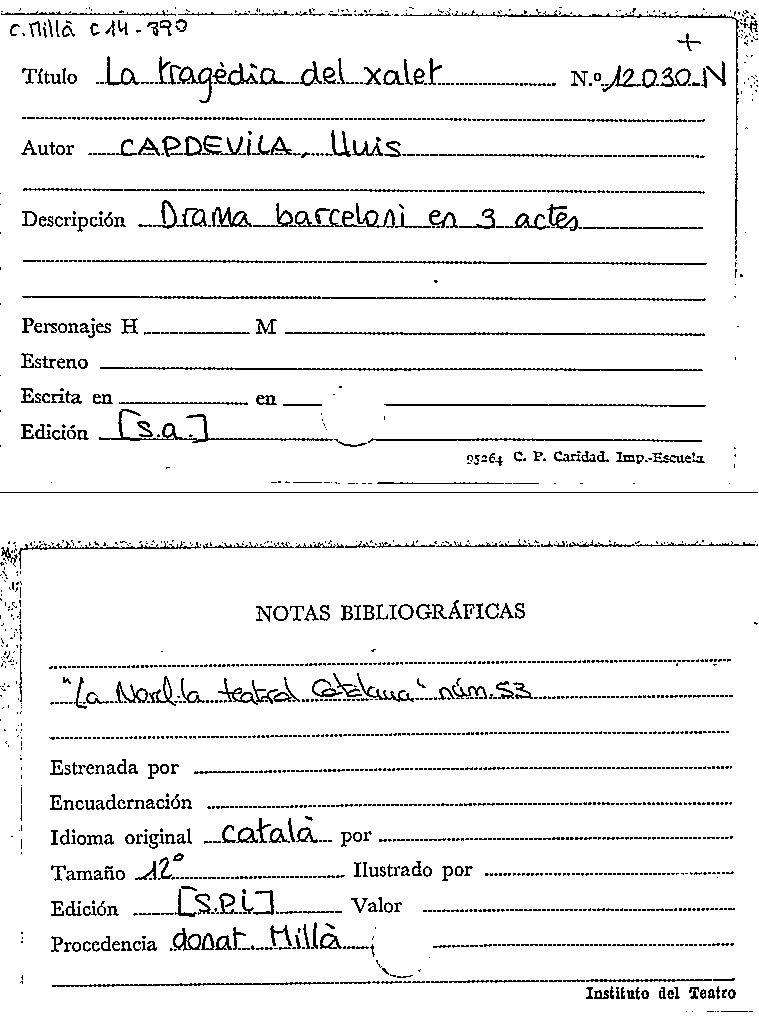 C. Millà C 14 - 890
+
Título La tragèdia del xalet N.º 12030-N
Autor CAPDEVILA, Lluis
Descripción Drama barceloní en 3 actes
Personajes H M
Estreno
Escrita en en
Edición [s.a.]
95264 C. P. Caridad. Imp.-Escuela
NOTAS BIBLIOGRÁFICAS
"La Novel·la teatral Catalana" núm. 53
Estrenada por
Encuadernación
Idioma original català por
Tamaño 12º Ilustrado por
Edición [S.P.i] Valor
Procedencia donat. Millà
Instituto del Teatro